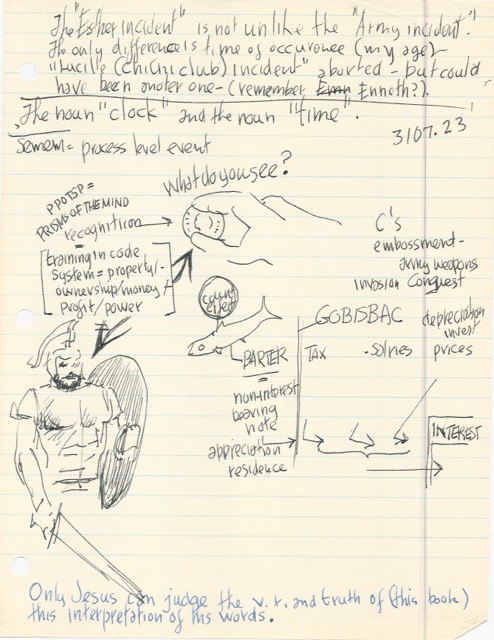 The "Esther incident" is not unlike the "Army incident".
The only difference is time of occurence (my age) -
"Lucille (ChiChi club) incident" aborted - but could
have been anoter one - (remember Enneth?).
The noun "clock" and the noun "time".
3107.23
Semem = process level event
What do you see?
PPOTSP =
PRISMS OF THE MIND
recognition
=
training in code
System = property/-
ownership/money/
Profit/power
C's
embossment-
army weapons
invasion conquest
count
GOBISBAC
depreciation
invest
prices
BARTER
=
non-interest
bearing
note
appreciation
residence
TAX
INTEREST
Only Jesus can judge the v. r. and truth of (this book)
this interpretation of his words.